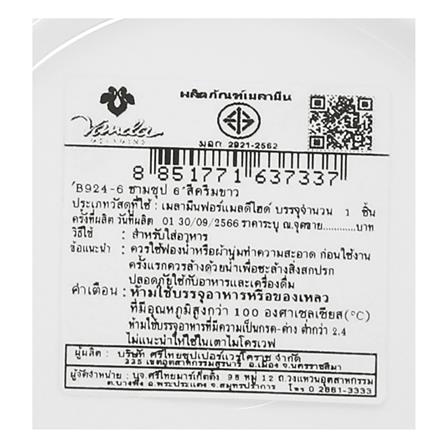 ผลิตภัณฑ์เมลามีน
Vanda
MELAMINE
มอก 2921-2562
8 851771 637337
B924-6 ชามซุป 6" สีครีมขาว
ประเภทวัสดุที่ใช้ : เมลามีนฟอร์แมลดีไฮด์ บรรจุจำนวน 1 ชิ้น
ครั้งที่ผลิต วันที่ผลิต 01 30/09/2566 ราคาระบุ ณ.จุดขาย............บาท
วิธีใช้ : สำหรับใส่อาหาร
ข้อแนะนำ : ควรใช้ฟองน้ำหรือผ้านุ่มทำความสะอาด ก่อนใช้งาน
ครั้งแรกควรล้างด้วยน้ำเพื่อชะล้างสิ่งสกปรก
ปลอดภัยใช้กับอาหารและเครื่องดื่ม
คำเตือน : ห้ามใช้บรรจุอาหารหรือของเหลว
ที่มีอุณหภูมิสูงกว่า 100 องศาเซลเซียส(°C)
ห้ามใช้บรรจุอาหารที่มีความเป็นกรด-ด่าง ต่ำกว่า 2.4
ไม่แนะนำให้ใช้ในเตาไมโครเวฟ
ผู้ผลิต : บริษัท ศรีไทยซุปเปอร์แวร์โคราช จำกัด
335 เขตอุตสาหกรรมสุรนารี อ.เมือง จ.นครราชสีมา
ผู้จัดจำหน่าย : บจ.ศรีไทยมาร์เก็ตติ้ง 98 หมู่ 12 ถ.วงแหวนอุตสาหกรรม
ต.บางพึ่ง อ.พระประแดง จ.สมุทรปราการ โทร 0 2661-3333